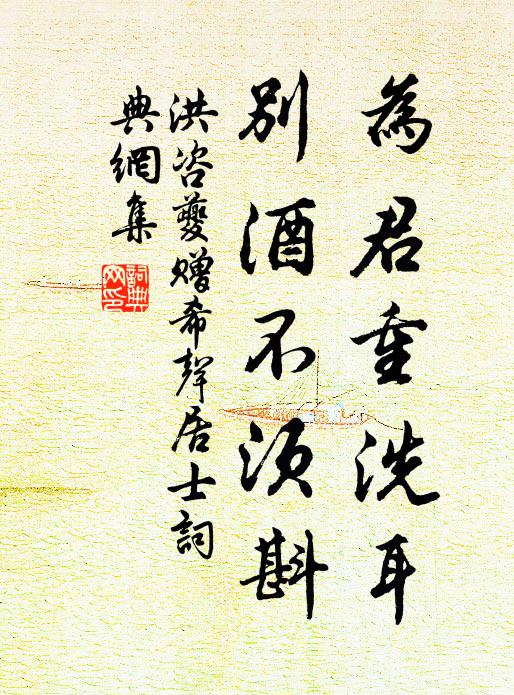 為君重洗耳
別酒不須斟
洪咨夔贈希聲居士詞
典網集
詞典
网印